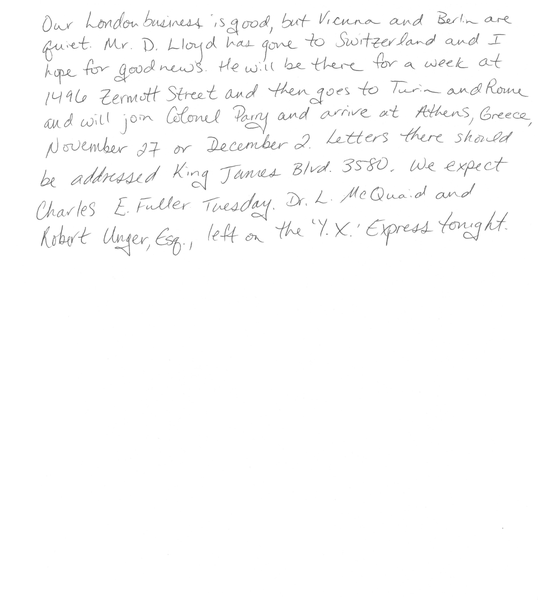 Our London business is good, but Vienna and Berlin are
quiet. Mr. D. Lloyd has gone to Switzerland and I
hope for good news. He will be there for a week at
1496 Zermott Street and then goes to Turin and Rome
and will join Colonel Parry and arrive at Athens, Greece,
November 27 or December 2. Letters there should
be addressed King James Blvd. 3580. We expect
Charles E. Fuller Tuesday. Dr. L. McQuaid and
Robert Unger, Esq., left on the 'Y.X.' Express tonight.